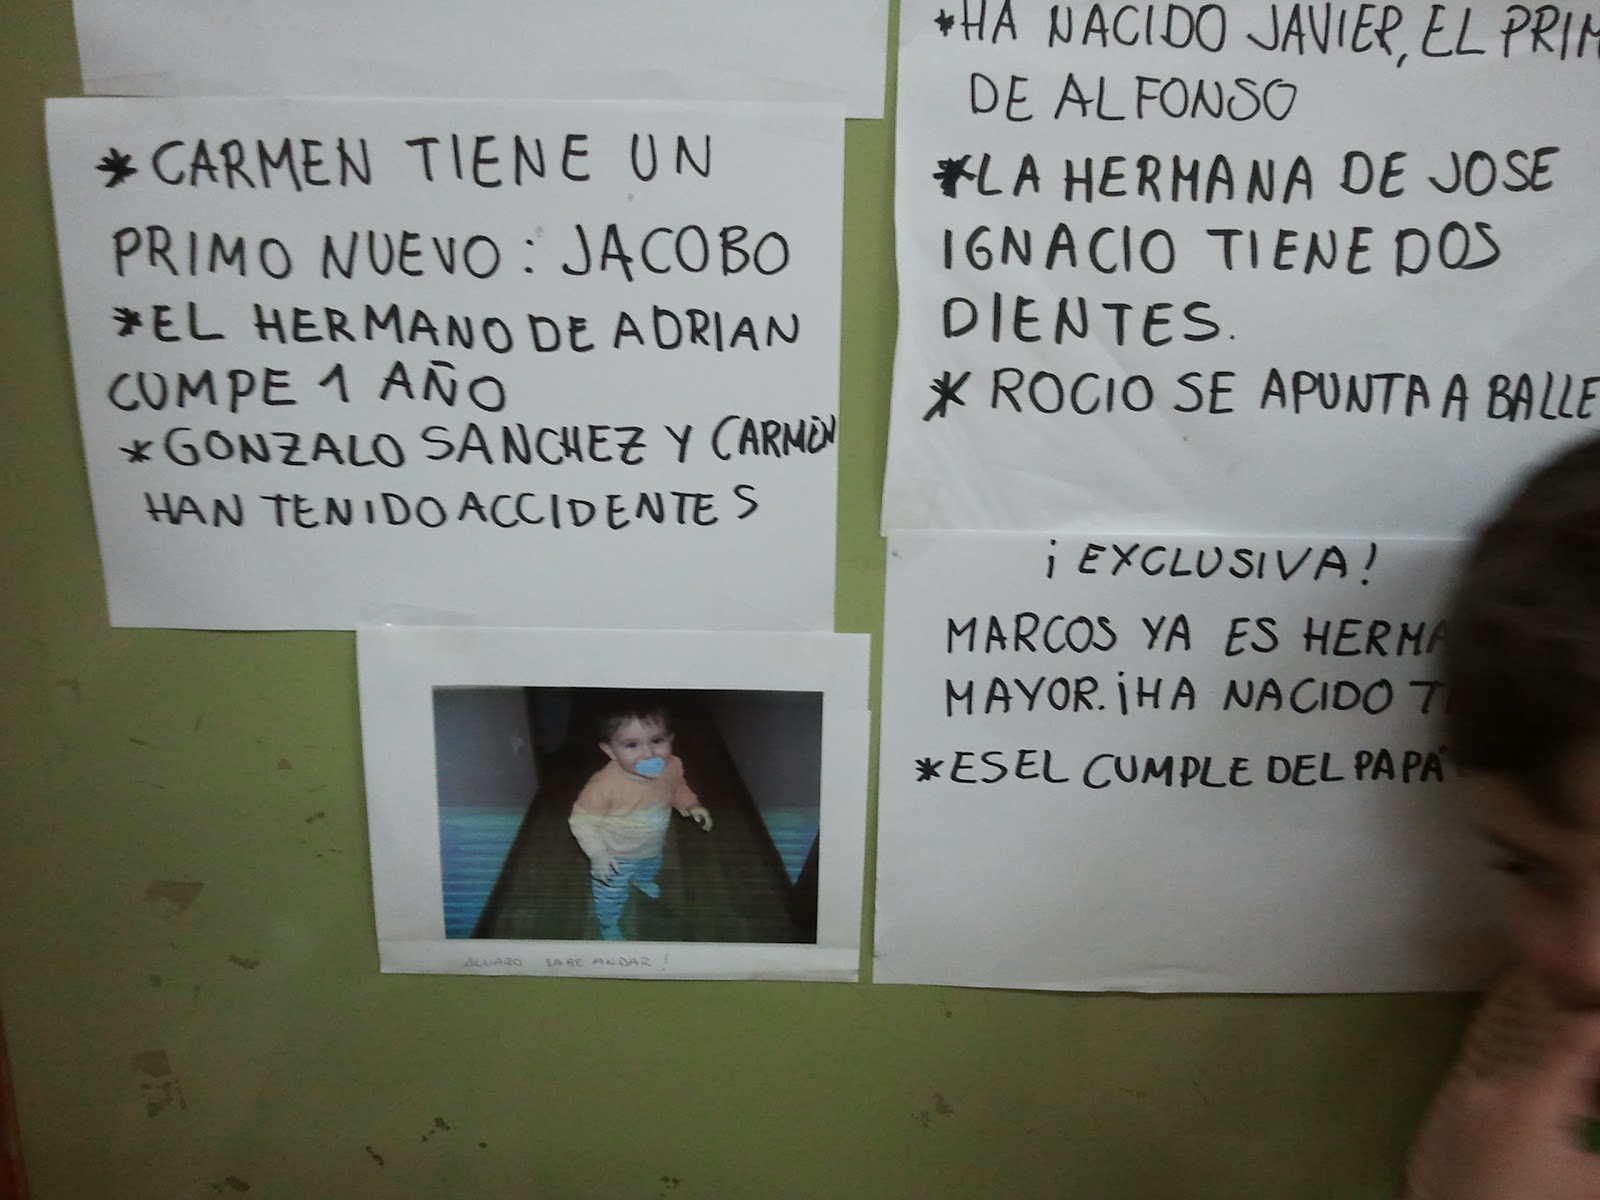 *CARMEN TIENE UN
PRIMO NUEVO: JACOBO
*EL HERMANO DE ADRIAN
CUMPE 1 AÑO
*GONZALO SANCHEZ Y CARMEN
HAN TENIDO ACCIDENTES
ALVARO SABE ANDAR!
*HA NACIDO JAVIER, EL PRIM
DE ALFONSO
*LA HERMANA DE JOSE
IGNACIO TIENE DOS
DIENTES.
* ROCIO SE APUNTA A BALLE
¡EXCLUSIVA!
MARCOS YA ES HERMA
MAYOR. ¡HA NACIDO
*ES EL CUMPLE DEL PAPÁ